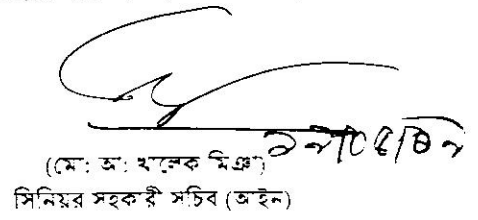 (মো: আ: খালেক মিঞা)
সিনিয়র সহকারী সচিব (আইন)